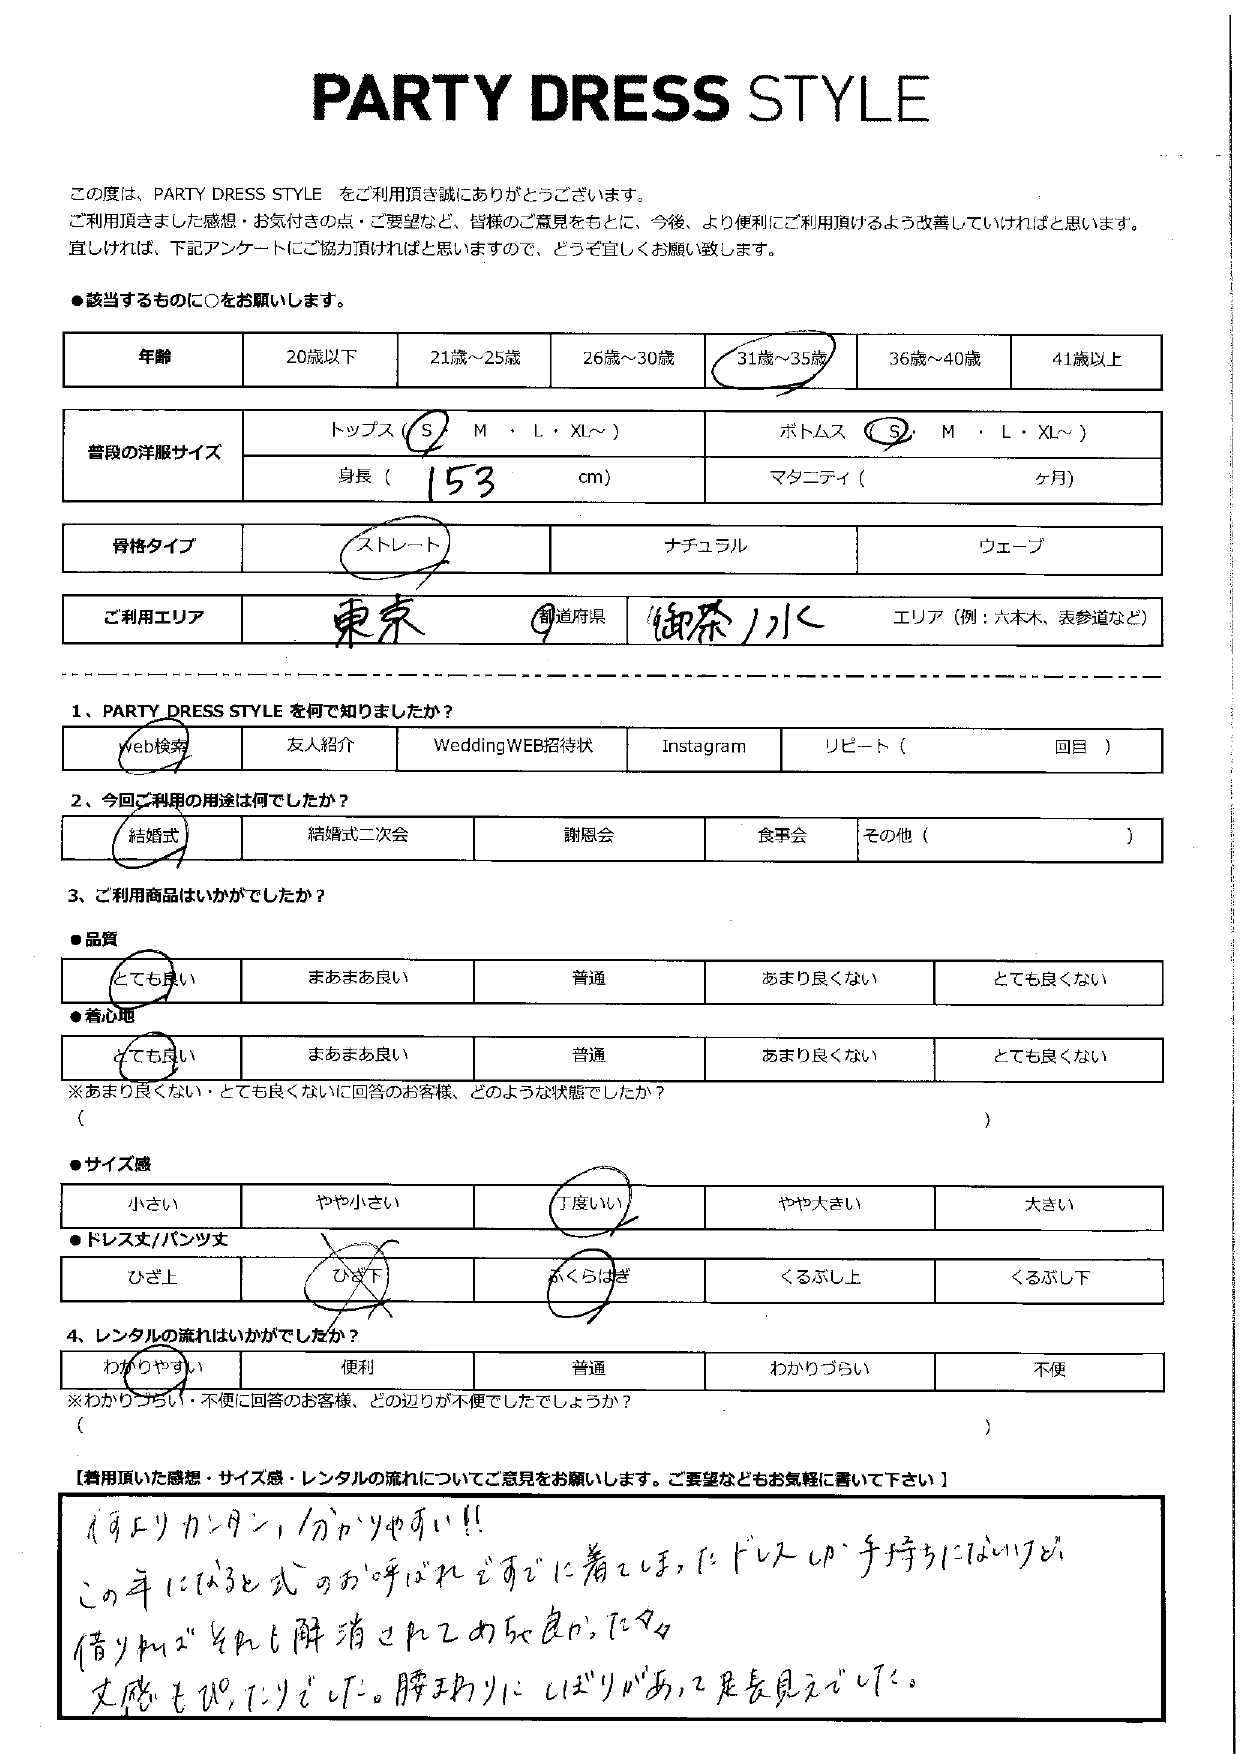 PARTY DRESS STYLE
この度は、PARTY DRESS STYLE をご利用頂き誠にありがとうございます。
ご利用頂きました感想・お気付きの点・ご要望など、皆様のご意見をもとに、今後、より便利にご利用頂けるよう改善していければと思います。
宜しければ、下記アンケートにご協力頂ければと思いますので、どうぞ宜しくお願い致します。
●該当するものに○をお願いします。
年齢 20歳以下 21歳～25歳 26歳～30歳 31歳～35歳 36歳～40歳 41歳以上
普段の洋服サイズ トップス ( S ・ M ・ L ・ XL～ ) ボトムス ( S ・ M ・ L ・ XL～ )
身長 ( 153 cm) マタニティ ( ヶ月)
骨格タイプ ストレート ナチュラル ウェーブ
ご利用エリア 東京 都道府県 御茶ノ水 エリア (例：六本木、表参道など)
1、PARTY DRESS STYLE を何で知りましたか？
web検索 友人紹介 WeddingWEB招待状 Instagram リピート ( 回目 )
2、今回ご利用の用途は何でしたか？
結婚式 結婚式二次会 謝恩会 食事会 その他 ( )
3、ご利用商品はいかがでしたか？
●品質
とても良い まあまあ良い 普通 あまり良くない とても良くない
●着心地
とても良い まあまあ良い 普通 あまり良くない とても良くない
※あまり良くない・とても良くないに回答のお客様、どのような状態でしたか？
( )
●サイズ感
小さい やや小さい 丁度いい やや大きい 大きい
●ドレス丈/パンツ丈
ひざ上 ひざ下 ふくらはぎ くるぶし上 くるぶし下
4、レンタルの流れはいかがでしたか？
わかりやすい 便利 普通 わかりづらい 不便
※わかりづらい・不便に回答のお客様、どの辺りが不便でしたでしょうか？
( )
【着用頂いた感想・サイズ感・レンタルの流れについてご意見をお願いします。ご要望などもお気軽に書いて下さい 】
何よりカンタン,分かりやすい!!
この年になると式のお呼ばれですでに着てしまったドレスしか手持ちにないけど、
借りればそれも解消されてめちゃ良かった
丈感もぴったりでした。腰まわりにしぼりがあって足長見えでした。